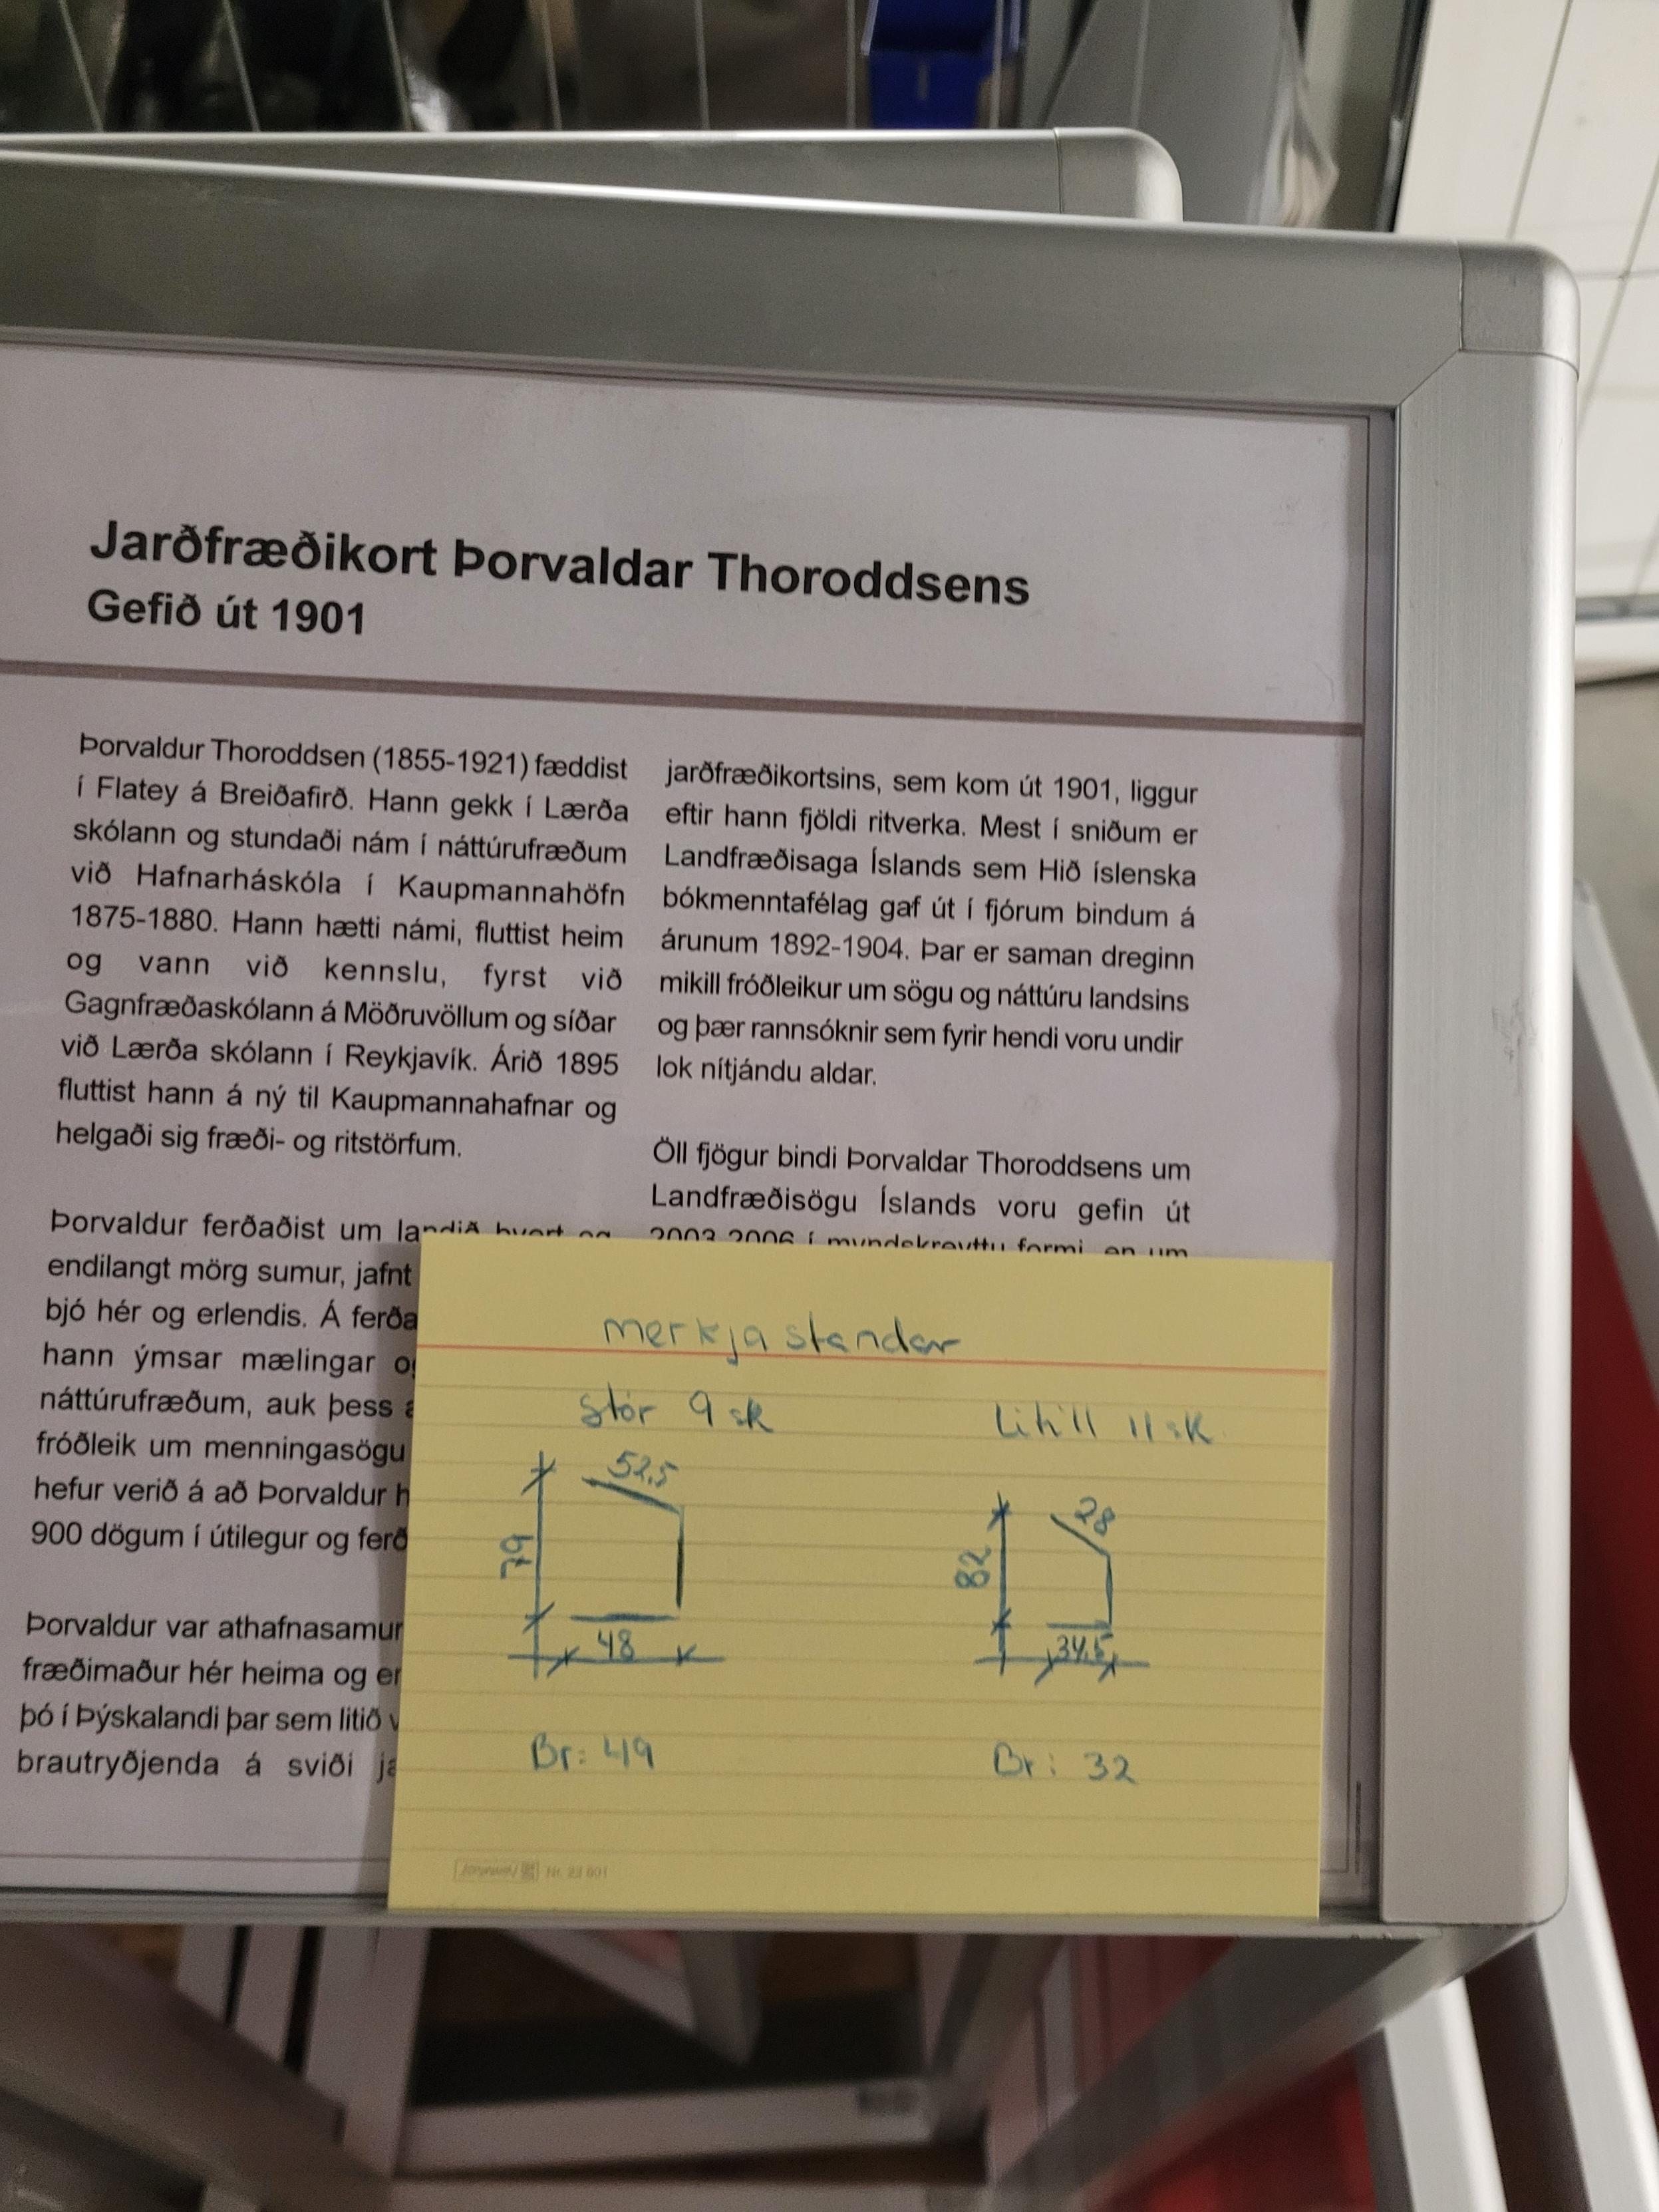 Jarðfræðikort Þorvaldar Thoroddsens
Gefið út 1901
Þorvaldur Thoroddsen (1855-1921) fæddist
í Flatey á Breiðafirð. Hann gekk í Lærða
skólann og stundaði nám í náttúrufræðum
við Hafnarháskóla í Kaupmannahöfn
1875-1880. Hann hætti námi, fluttist heim
og vann við kennslu, fyrst við
Gagnfræðaskólann á Möðruvöllum og síðar
við Lærða skólann í Reykjavík. Árið 1895
fluttist hann á ný til Kaupmannahafnar og
helgaði sig fræði- og ritstörfum.
Þorvaldur ferðaðist um landið hvort og
endilangt mörg sumur, jafnt
bjó hér og erlendis. Á ferða
hann ýmsar mælingar
náttúrufræðum, auk þess
fróðleik um menningasögu
hefur verið á að Þorvaldur h
900 dögum í útilegur og ferð
Þorvaldur var athafnasamur
fræðimaður hér heima og er
þó í Þýskalandi þar sem litið
brautryðjenda á sviði
jarðfræðikortsins, sem kom út 1901, liggur
eftir hann fjöldi ritverka. Mest í sniðum er
Landfræðisaga Íslands sem Hið íslenska
bókmenntafélag gaf út í fjórum bindum á
árunum 1892-1904. Þar er saman dreginn
mikill fróðleikur um sögu og náttúru landsins
og þær rannsóknir sem fyrir hendi voru undir
lok nítjándu aldar.
Öll fjögur bindi Þorvaldar Thoroddsens um
Landfræðisögu Íslands voru gefin út
2003-2006 í myndskreyttu formi, en um
merkja standar
stór 9 sk
52,5
79
48
Br: 49
Lítill 11 sk
28
82
34,5
Br: 32
Nr. 23 601